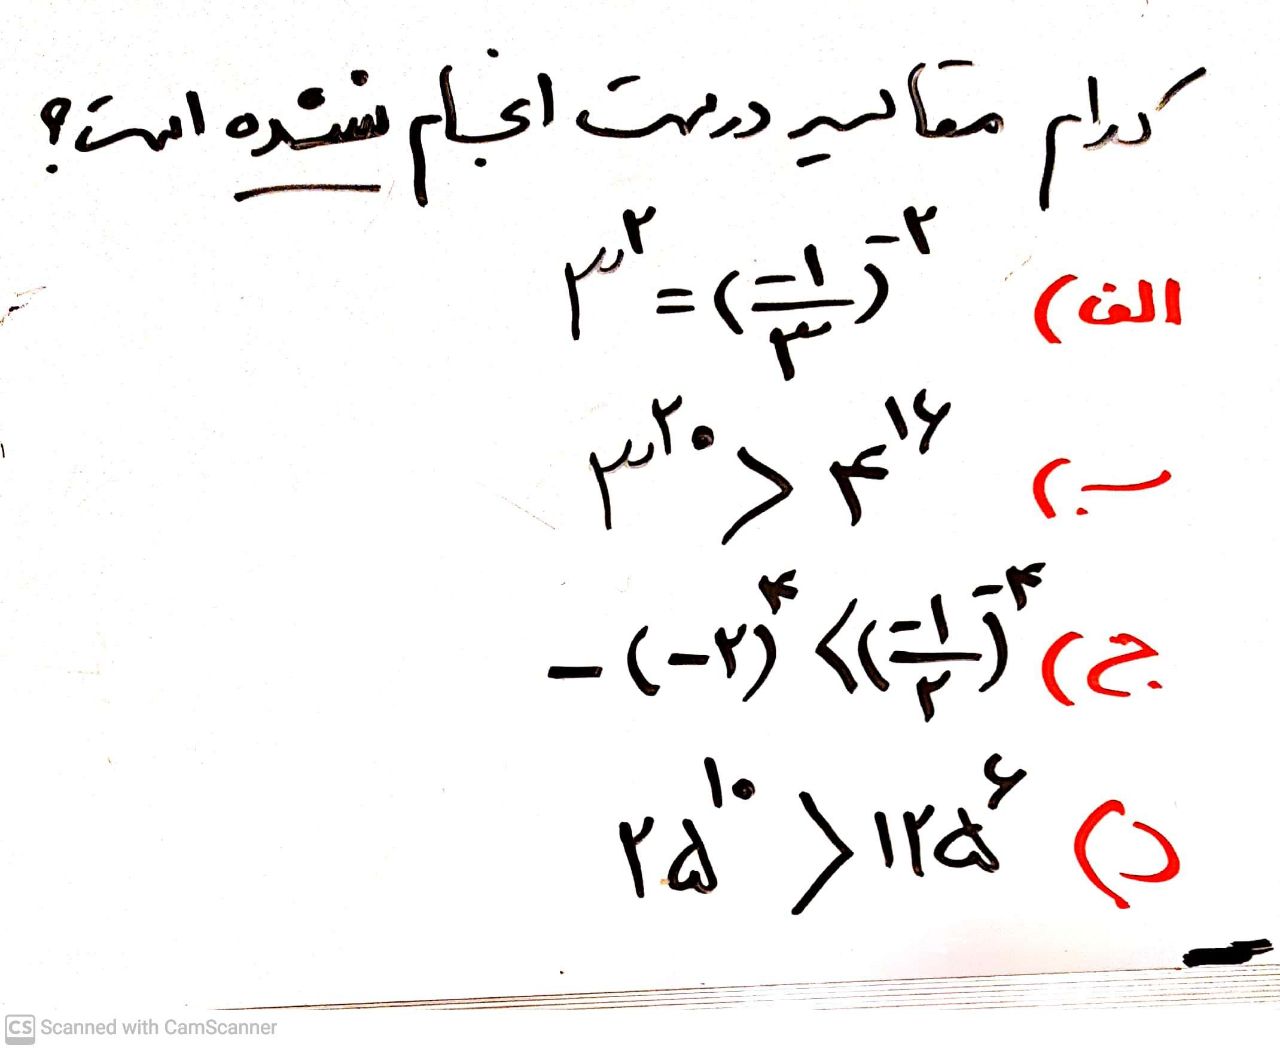 کدام مقایسه درست انجام نشده است؟
الف) ۳^۲ = (-۱/۳)^-۲
ب) ۳^۲۰ > ۴^۱۶
ج) -(-۲)^۴ < (-۱/۲)^-۴
د) ۲۵^۱۰ > ۱۲۵^۶
CS Scanned with CamScanner